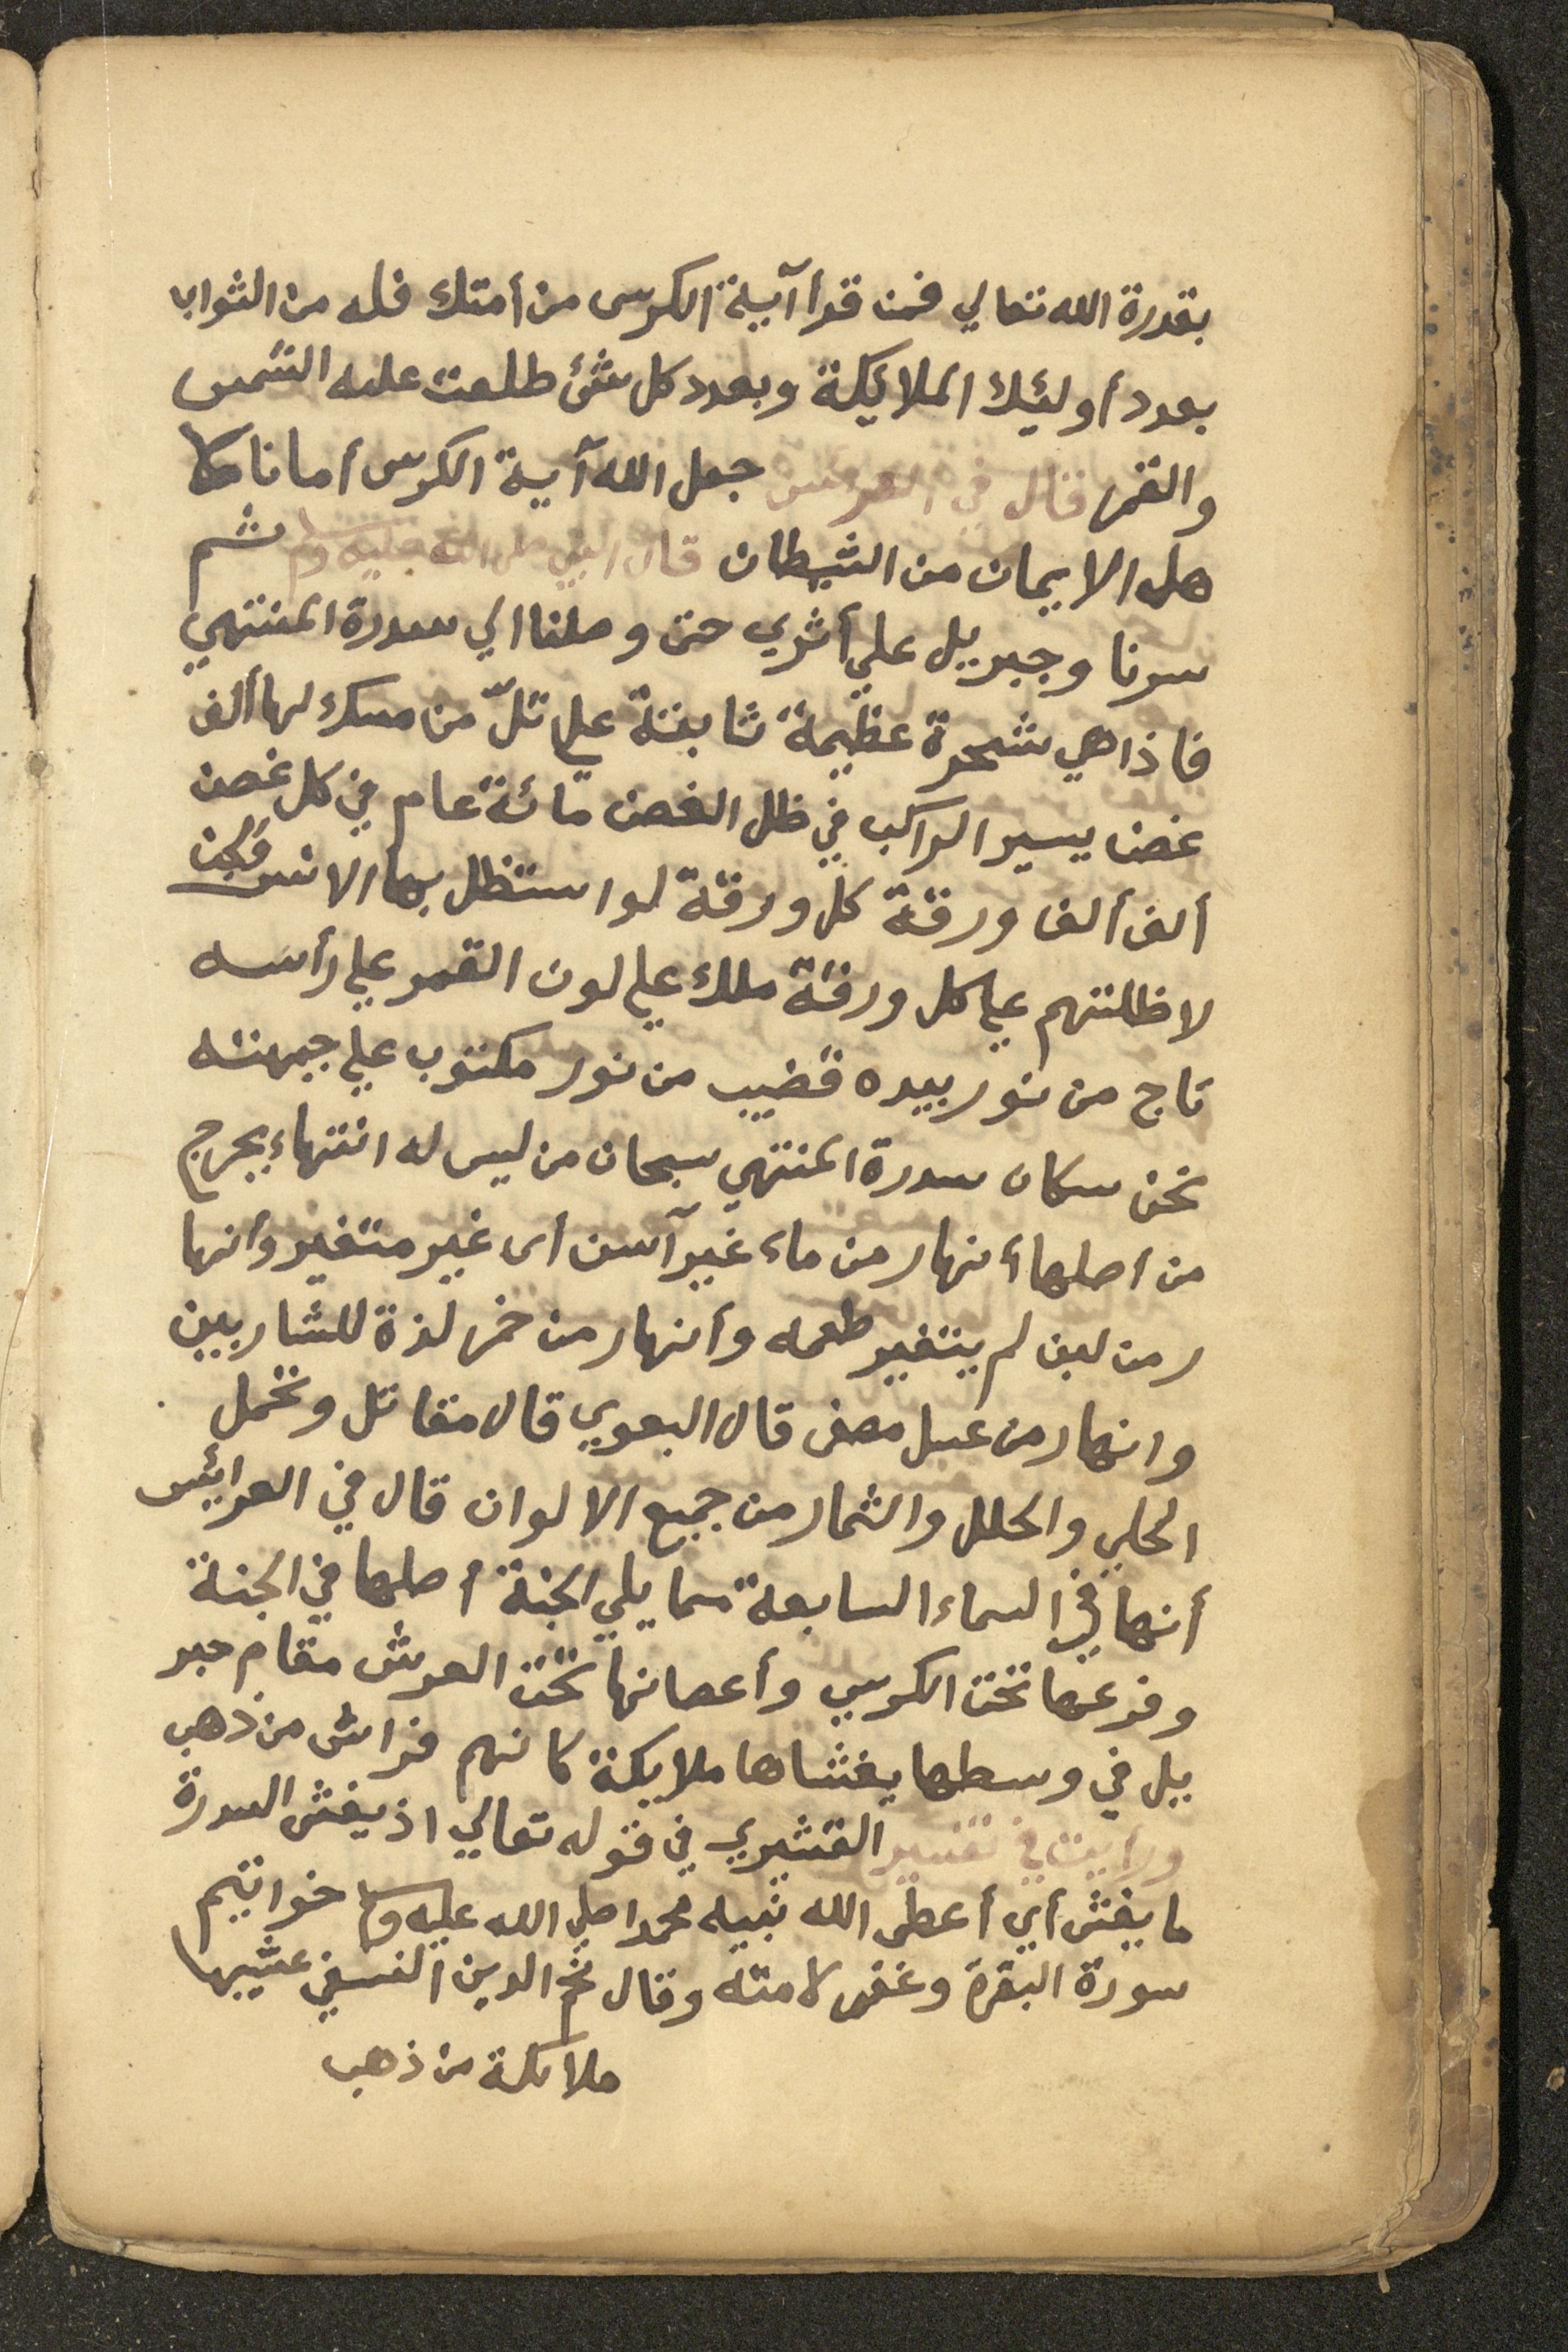 بقدرة الله تعالي فمن قرأ آية الكرسى من أمتك فله من الثواب
بعدد أوليئك الملايكة وبعدد كل شئ طلعت عليه الشمس
والقمر قال في العرائس جعل الله آية الكرسى أمانا لا
هل الايمان من الشيطان قال النبي صلى الله عليه وسلم ثم
سرنا وجبريل علي أثري حتى وصلنا الي سدرة المنتهي
فاذا هي شجرة عظيمة ثابتة علي تلّ من مسك لها ألف
غصن يسير الراكب في ظل الغصن مائة عام في كل غصن
ألف ألف ورقة كل ورقة لو استظل بها الانس والجن
لاظلتهم علي كل ورقة ملك علي لون القمر علي رأسه
تاج من نور بيده قضيب من نور مكتوب علي جبهته
نحن سكان سدرة المنتهي سبحان من ليس له انتهاء يخرج
من اصلها أنهار من ماء غير آسن أى غير متغير وأنها
ر من لبن لم يتغير طعمه وأنهار من خمر لذة للشاربين
وانهار من عسل مصفى قال البغوي قال مقاتل وتحمل
الحلي والحلل والثمار من جميع الالوان قال في العرائس
أنها في السماء السابعة مما يلي الجنة اصلها في الجنة
وفرعها تحت الكرسي وأغصانها تحت العرش مقام جبر
يل في وسطها يغشاها ملايكة كانهم فراش من ذهب
ورأيت في تفسير القشيري في قوله تعالي اذ يغشى السدرة
ما يغشى أي أعطى الله نبيه محمدا صلي الله عليه وسلم خواتيم
سورة البقرة وغفر لامته وقال نجم الدين النسفي غشيها
ملايكة من ذهب